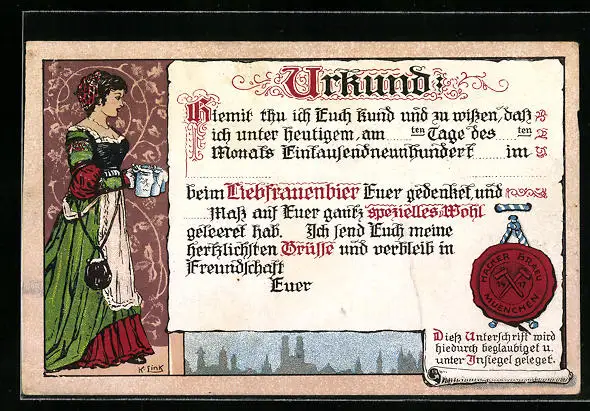 Urkund:
Hiemit thu ich Euch kund und zu wißen, daß
ich unter heutigem, am ten Tage des ten
Monats Eintausendneunhundert im
beim Liebfrauenbier Euer gedenket, und
Maß auf Euer gantz spezielles Wohl
geleeret hab. Ich send Euch meine
hertzlichsten Grüsse und verbleib in
Freundschaft
Euer
HACKER BRÄU
14 17
MUENCHEN
Dieß Unterschrift wird
hiedurch beglaubiget u.
unter Insiegel geleget.
K. Fink